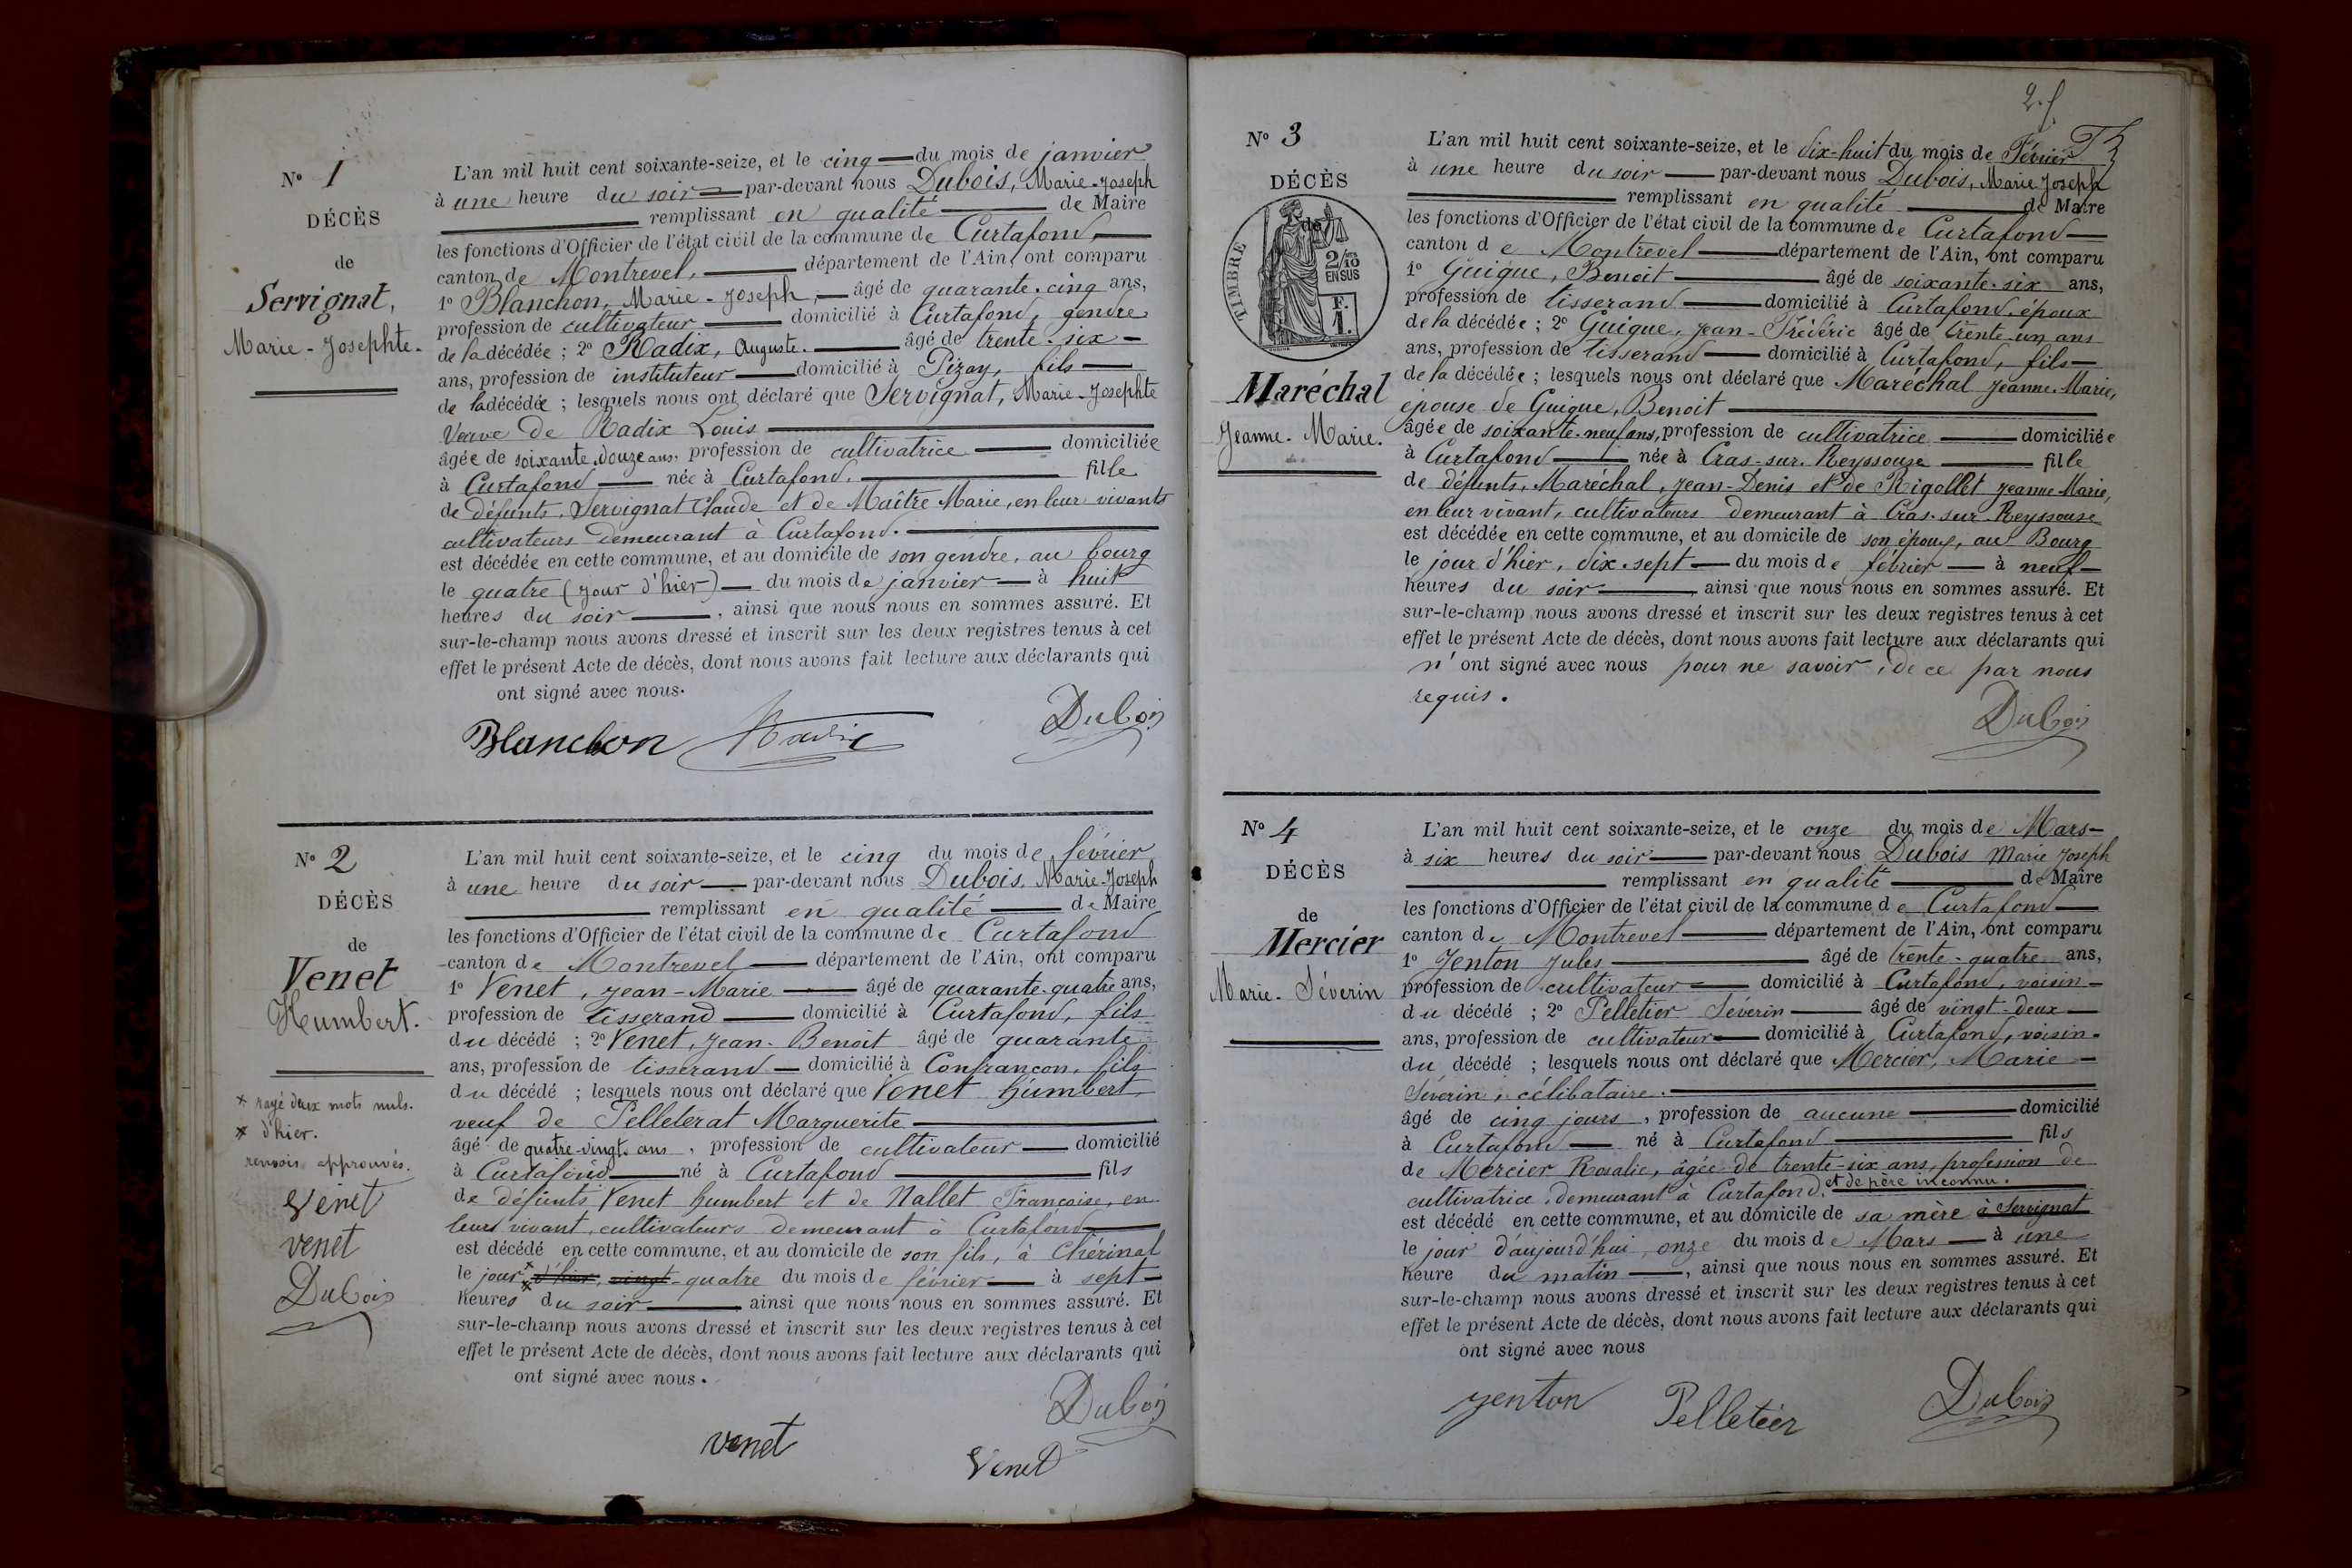 N° 1
DÉCÈS
de
Servignat,
Marie-Josephte.
L'an mil huit cent soixante-seize, et le cinq du mois de janvier
à une heure du soir par-devant nous Dubois, Marie-Joseph
remplissant en qualité de Maire
les fonctions d'Officier de l'état civil de la commune de Curtafond,
canton de Montrevel, département de l'Ain, ont comparu
1° Blanchon, Marie-Joseph, âgé de quarante-cinq ans,
profession de cultivateur domicilié à Curtafond, gendre
de la décédée ; 2° Radix, Auguste. âgé de trente-six
ans, profession de instituteur domicilié à Pizay, fils
de la décédée ; lesquels nous ont déclaré que Servignat, Marie-Josephte
Veuve de Radix Louis
âgée de soixante-douze ans, profession de cultivatrice domiciliée
à Curtafond née à Curtafond. fille
de défunts, Servignat Claude et de Maître Marie, en leur vivants
cultivateurs demeurant à Curtafond.
est décédée en cette commune, et au domicile de son gendre, au bourg
le quatre (jour d'hier) du mois de janvier à huit
heures du soir , ainsi que nous nous en sommes assuré. Et
sur-le-champ nous avons dressé et inscrit sur les deux registres tenus à cet
effet le présent Acte de décès, dont nous avons fait lecture aux déclarants qui
ont signé avec nous.
Blanchon Radix Dubois
N° 2
DÉCÈS
de
Venet
Humbert.
* rayé deux mots nuls.
* d'hier.
renvois approuvés.
Venet
venet
Dubois
L'an mil huit cent soixante-seize, et le cinq du mois de février
à une heure du soir par-devant nous Dubois, Marie-Joseph
remplissant en qualité de Maire
les fonctions d'Officier de l'état civil de la commune de Curtafond
canton de Montrevel département de l'Ain, ont comparu
1° Venet, Jean-Marie âgé de quarante-quatre ans,
profession de tisserand domicilié à Curtafond, fils
du décédé ; 2° Venet, Jean-Benoit âgé de quarante
ans, profession de tisserand domicilié à Confrançon, fils
du décédé ; lesquels nous ont déclaré que Venet humbert,
veuf de Pelleterat Marguerite
âgé de quatre-vingt ans, profession de cultivateur domicilié
à Curtafond né à Curtafond fils
de défunts Venet humbert et de Nallet Françoise, en
leurs vivant, cultivateurs demeurant à Curtafond
est décédé en cette commune, et au domicile de son fils, à Chérinal
le jour * d'hier, vingt-quatre du mois de février à sept
heures du soir ainsi que nous nous en sommes assuré. Et
sur-le-champ nous avons dressé et inscrit sur les deux registres tenus à cet
effet le présent Acte de décès, dont nous avons fait lecture aux déclarants qui
ont signé avec nous.
Dubois
venet
Venet
2. f.
N° 3
DÉCÈS
de
TIMBRE
2/10
EN SUS
F.
1.
Maréchal
Jeanne-Marie.
L'an mil huit cent soixante-seize, et le dix-huit du mois de Février
à une heure du soir par-devant nous Dubois, Marie Joseph
remplissant en qualité de Maire
les fonctions d'Officier de l'état civil de la commune de Curtafond
canton de Montrevel département de l'Ain, ont comparu
1° Guigue, Benoit âgé de soixante-six ans,
profession de tisserand domicilié à Curtafond, époux
de la décédée ; 2° Guigue, Jean-Frédéric âgé de trente-un ans
ans, profession de tisserand domicilié à Curtafond, fils
de la décédée ; lesquels nous ont déclaré que Maréchal Jeanne-Marie,
épouse de Guigue, Benoit
âgée de soixante-neuf ans, profession de cultivatrice domiciliée
à Curtafond née à Cras-sur-Reyssouze fille
de défunts, Maréchal, Jean-Denis et de Rigollet Jeanne Marie,
en leur vivant, cultivateurs demeurant à Cras-sur-Reyssouse
est décédée en cette commune, et au domicile de son époux, au Bourg
le jour d'hier, dix-sept du mois de février à neuf
heures du soir ainsi que nous nous en sommes assuré. Et
sur-le-champ nous avons dressé et inscrit sur les deux registres tenus à cet
effet le présent Acte de décès, dont nous avons fait lecture aux déclarants qui
n'ont signé avec nous pour ne savoir, de ce par nous
requis.
Dubois
N° 4
DÉCÈS
de
Mercier
Marie-Séverin
L'an mil huit cent soixante-seize, et le onze du mois de Mars
à six heures du soir par-devant nous Dubois Marie Joseph
remplissant en qualité de Maire
les fonctions d'Officier de l'état civil de la commune de Curtafond
canton de Montrevel département de l'Ain, ont comparu
1° Jenton Jules âgé de trente-quatre ans,
profession de cultivateur domicilié à Curtafond, voisin
du décédé ; 2° Pelletier Séverin âgé de vingt-deux
ans, profession de cultivateur domicilié à Curtafond, voisin
du décédé ; lesquels nous ont déclaré que Mercier, Marie
Séverin, célibataire.
âgé de cinq jours, profession de aucune domicilié
à Curtafond né à Curtafond fils
de Mercier Rosalie, âgée de trente-six ans, profession de
cultivatrice, demeurant à Curtafond, et de père inconnu.
est décédé en cette commune, et au domicile de sa mère à Servignat
le jour d'aujourd'hui, onze du mois de Mars à une
heure du matin , ainsi que nous nous en sommes assuré. Et
sur-le-champ nous avons dressé et inscrit sur les deux registres tenus à cet
effet le présent Acte de décès, dont nous avons fait lecture aux déclarants qui
ont signé avec nous
Jenton Pelletier Dubois